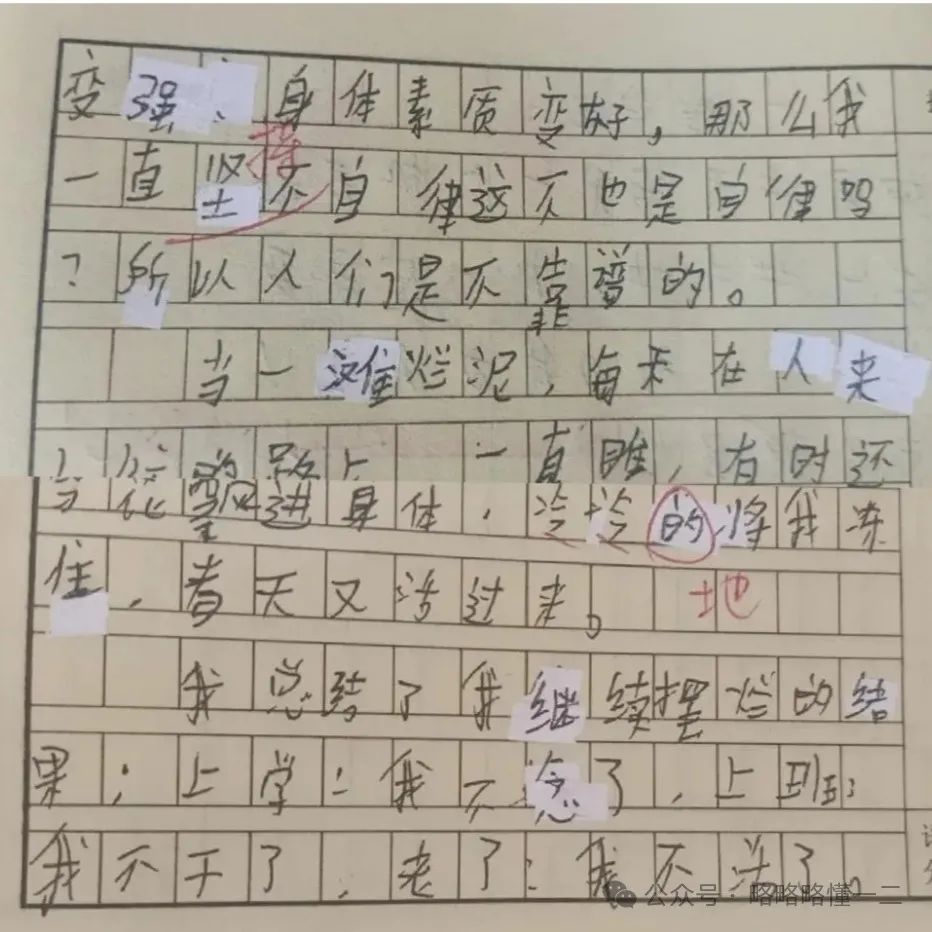 变强、身体素质变好，那么我
持
一直坚不自律这不也是自律吗
？所以人们是不靠谱的。
当一滩烂泥，每天在人来
路上 一直睡，有时还
风进身体，冷冷的将我冻
住，春天又活过来。
地
我总结了我继续摆烂的结
果；上学：我不念了，上班：
我不干了，老了：我不活了。
公众号·略略略懂一二